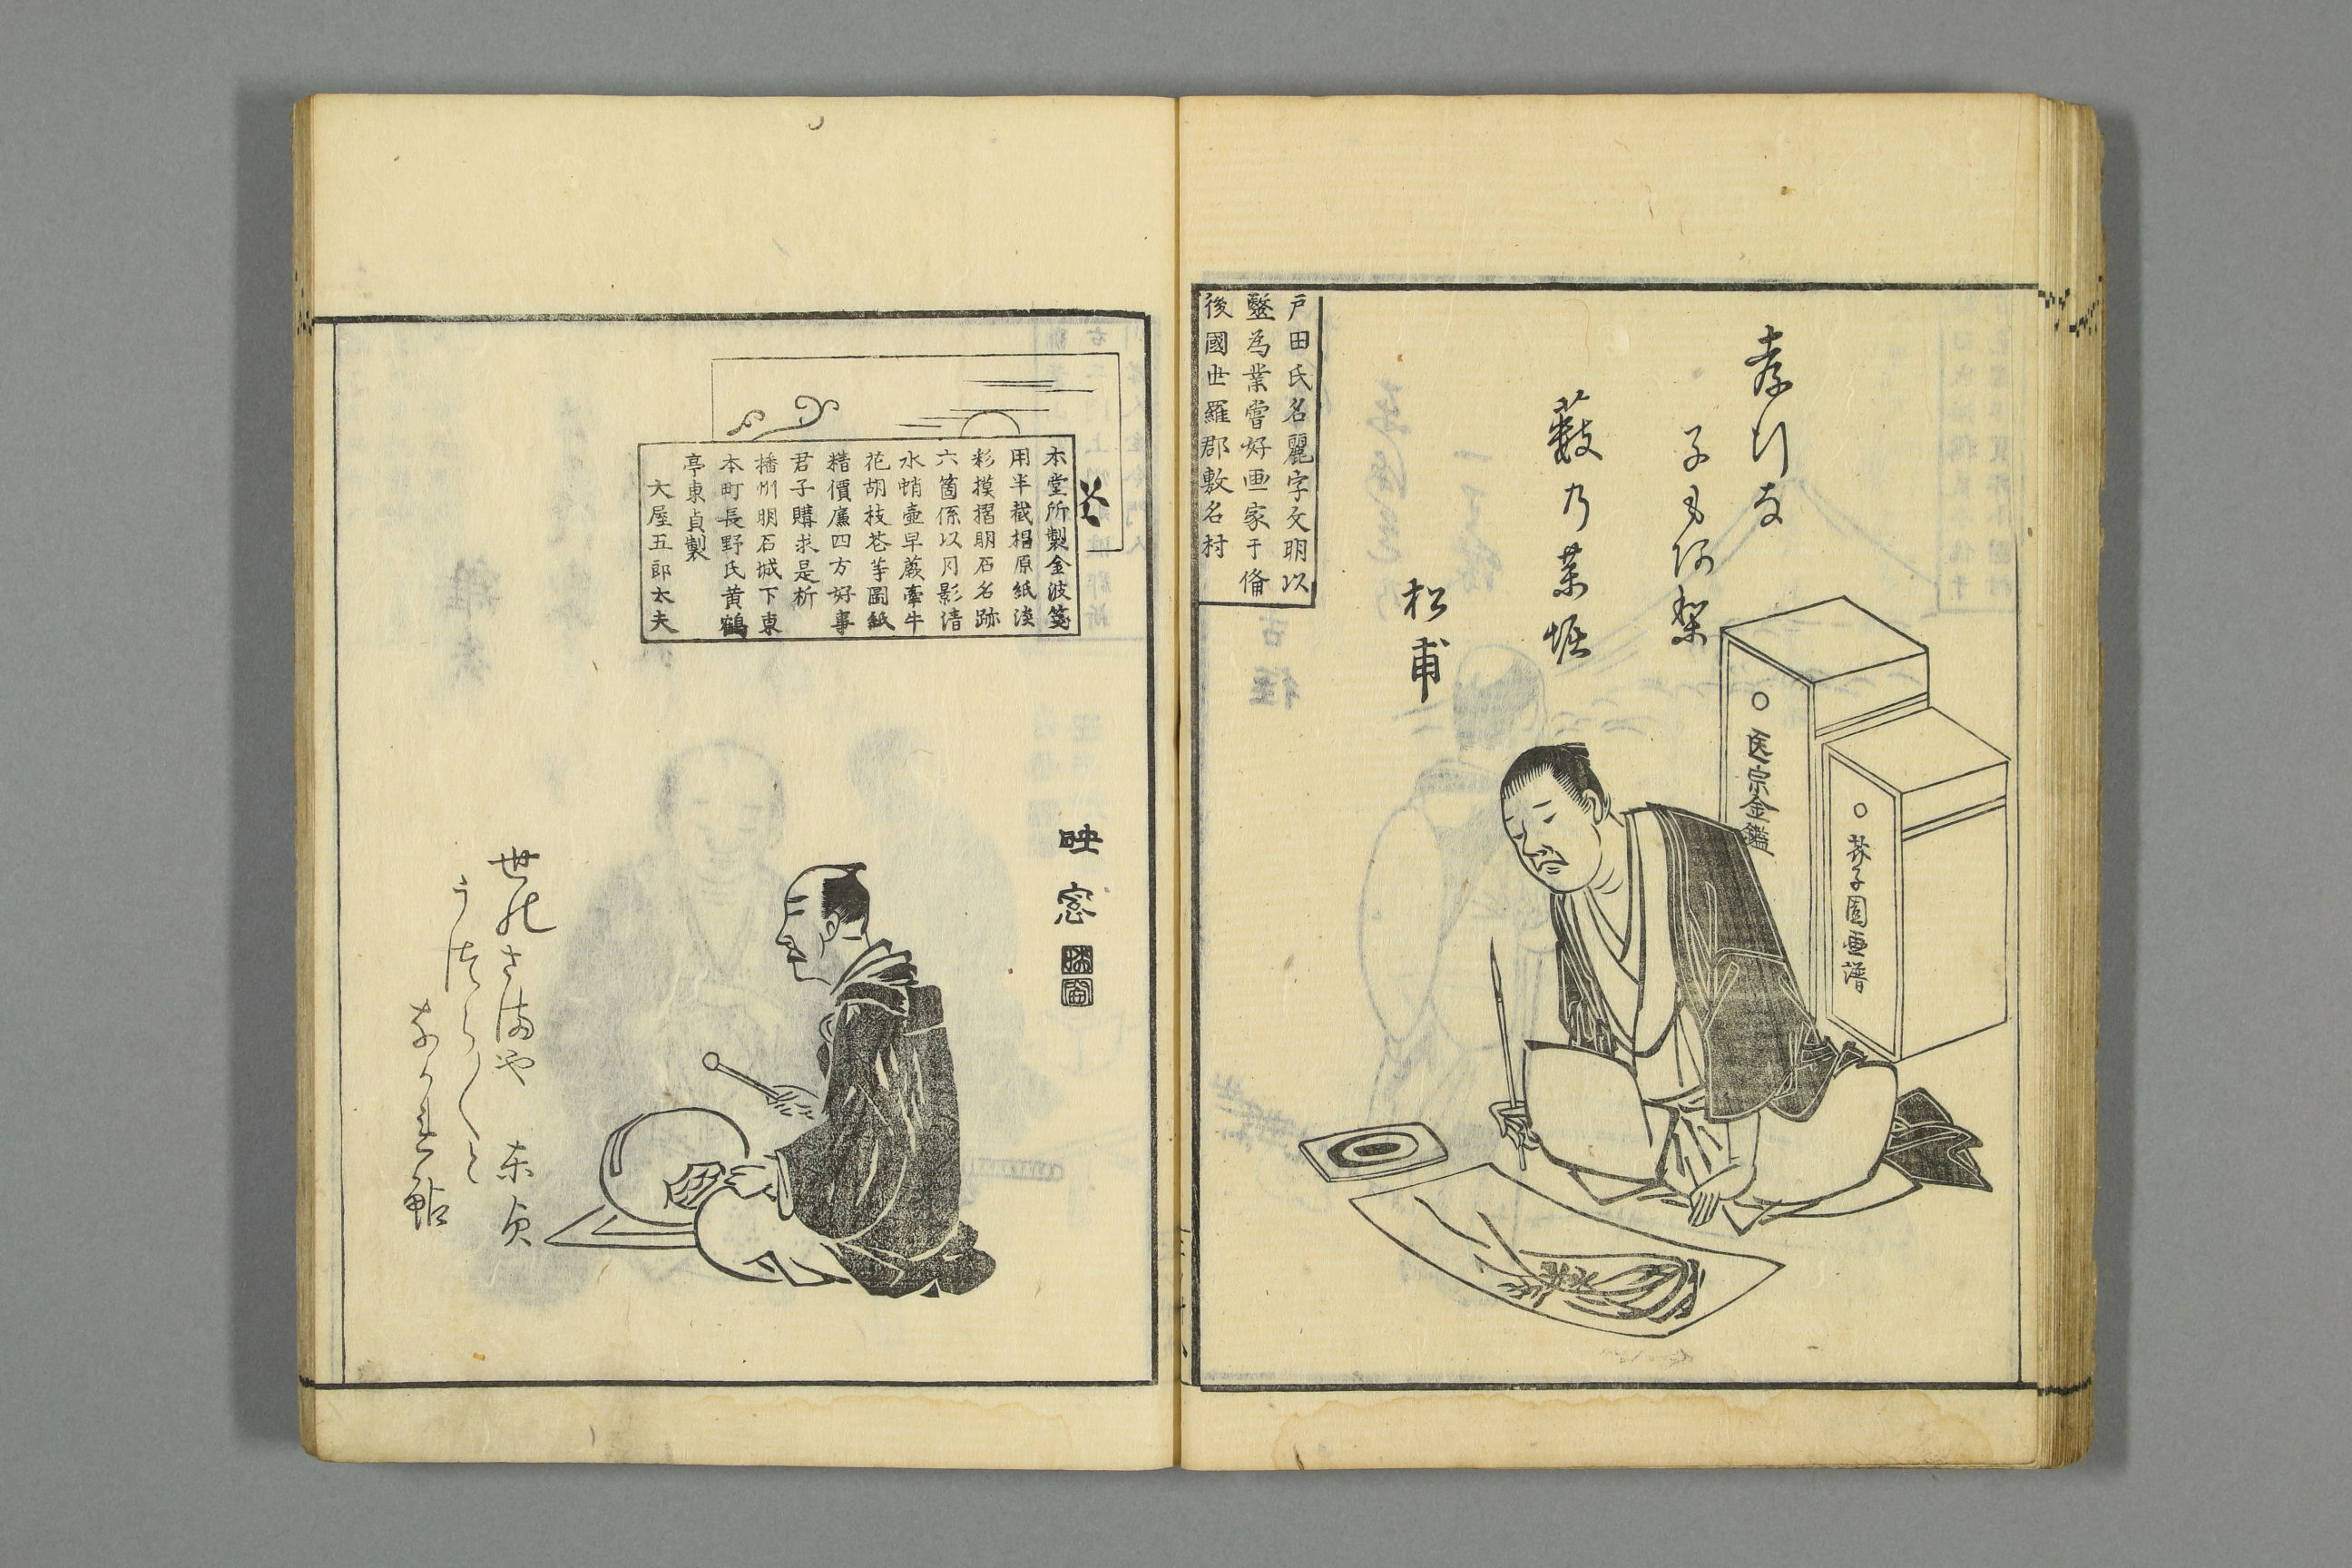 孝行な
子も何架
藪乃薬堀
松甫
戸田氏名麗字文明以
醫為業嘗好画家于備
後國世羅郡敷名村
○医宗金鑑
○芥子園画譜
本堂所製金波箋
用半截椙原紙淡
彩摸摺明石名跡
六箇係以月影清
水蛸壷早蕨牽牛
花胡枝花等圖紙
精價廉四方好事
君子購求是祈
播州明石城下東
本町長野氏黄鶴
亭東貞製
大屋五郎太夫
映窓
世のさまや
東貞
うつら〱と